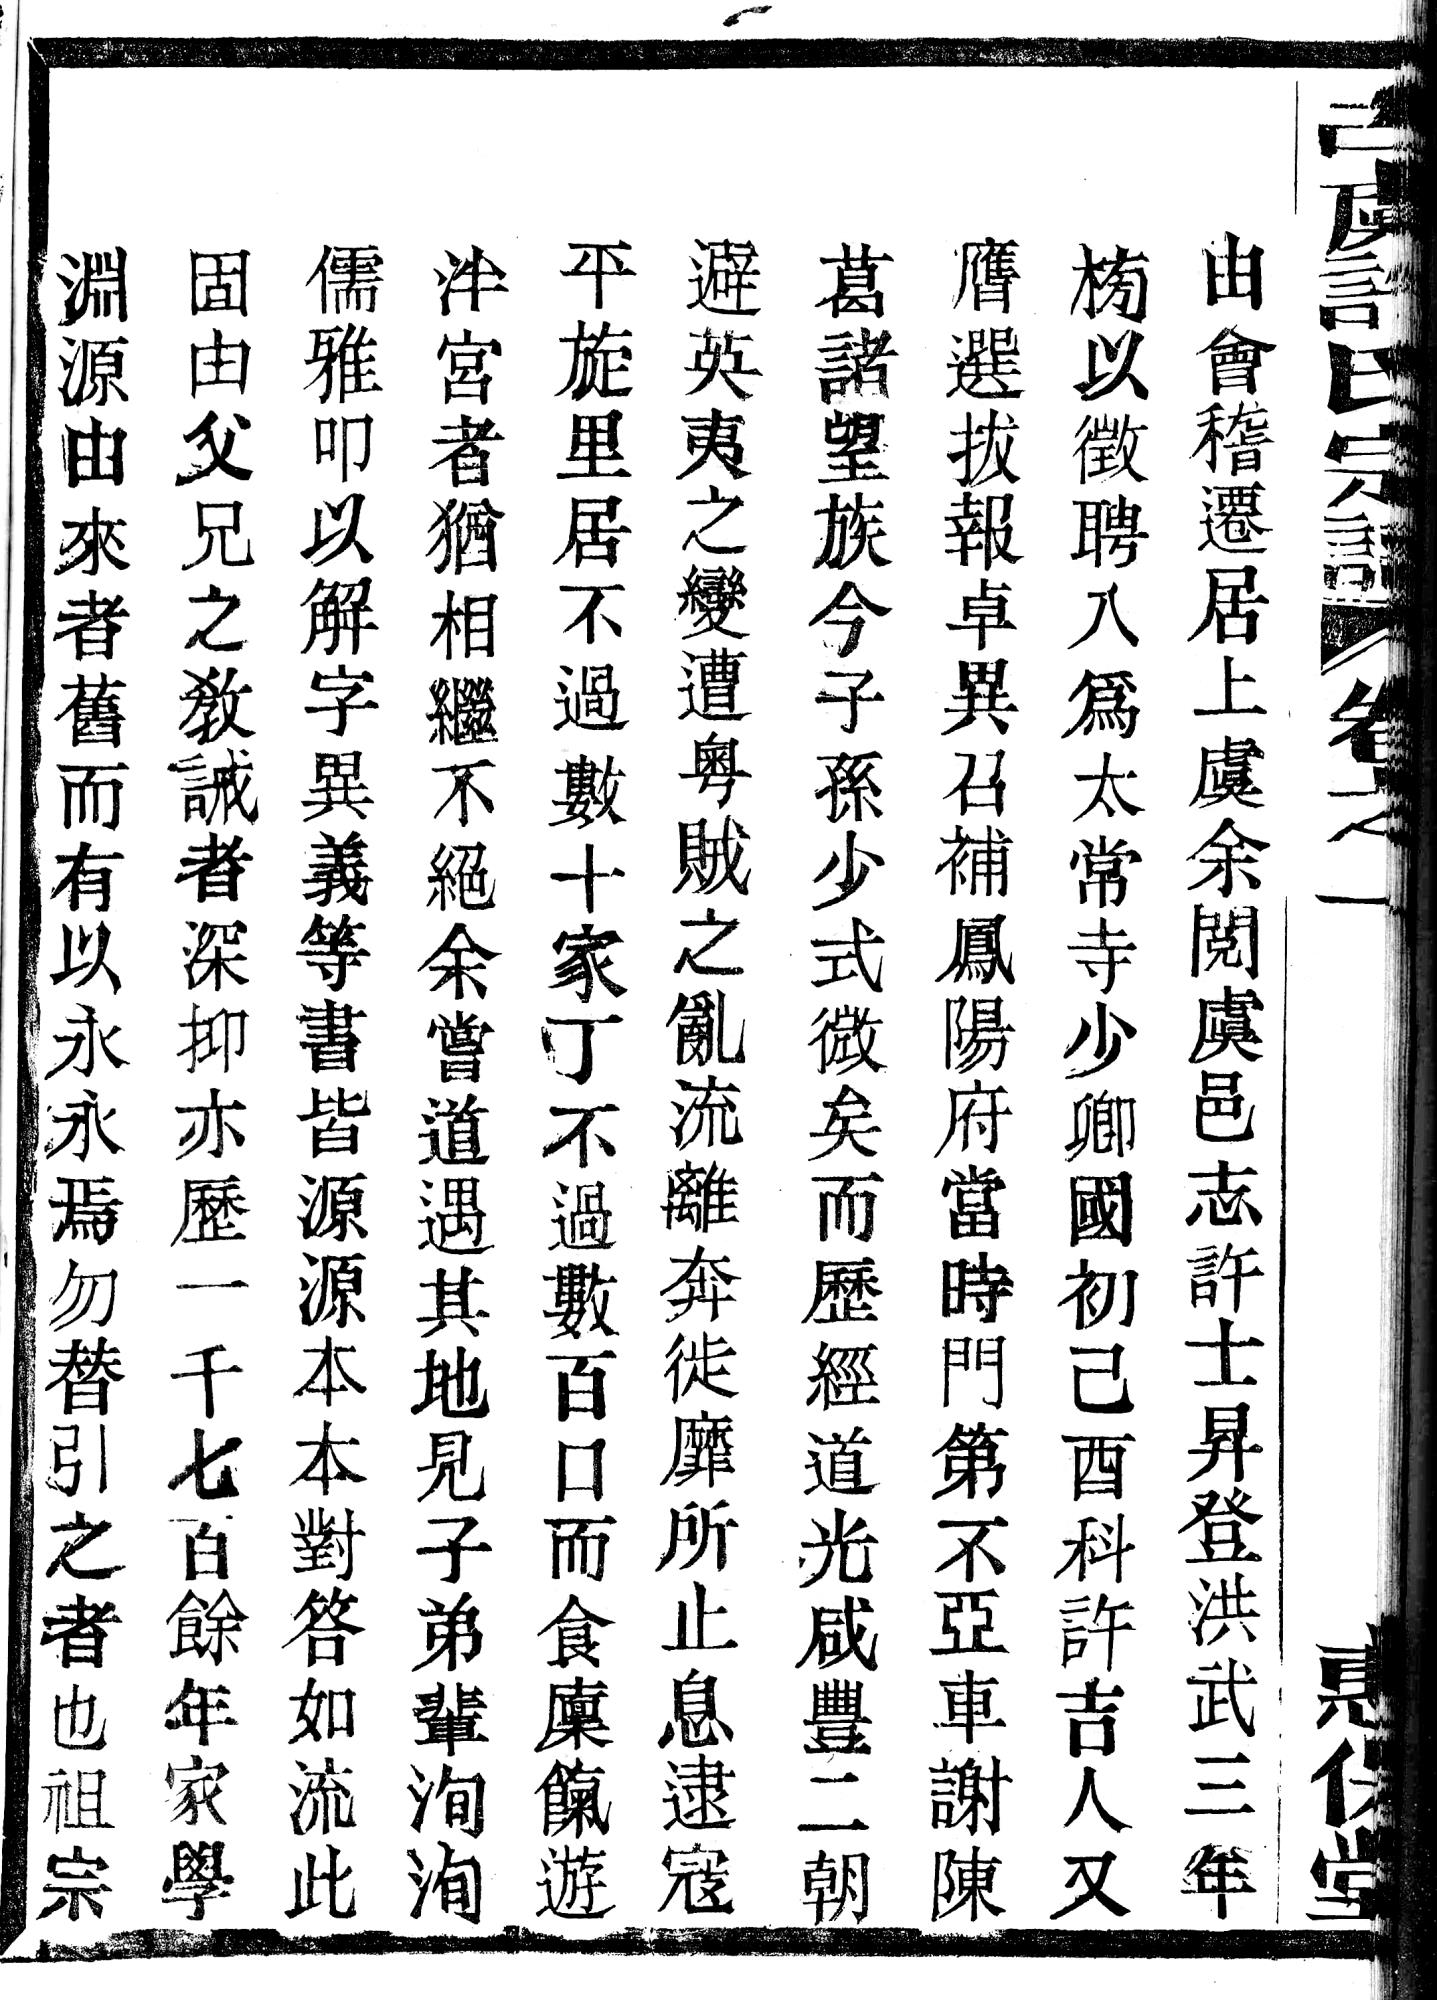 上虞許氏宗譜 卷之一 惠保堂
由會稽遷居上虞余閱虞邑志許士昇登洪武三年
栲以徵聘入爲太常寺少卿國初己酉科許吉人又
膺選拔報卓異召補鳳陽府當時門第不亞車謝陳
葛諸望族今子孫少式微矣而歷經道光咸豐二朝
避英夷之變遭粵賊之亂流離奔徙靡所止息逮寇
平旋里居不過數十家丁不過數百口而食廩餼遊
泮宮者猶相繼不絕余嘗道遇其地見子弟輩洵洵
儒雅叩以解字異義等書皆源源本本對答如流此
固由父兄之敎誡者深抑亦歷一千七百餘年家學
淵源由來者舊而有以永永焉勿替引之者也祖宗